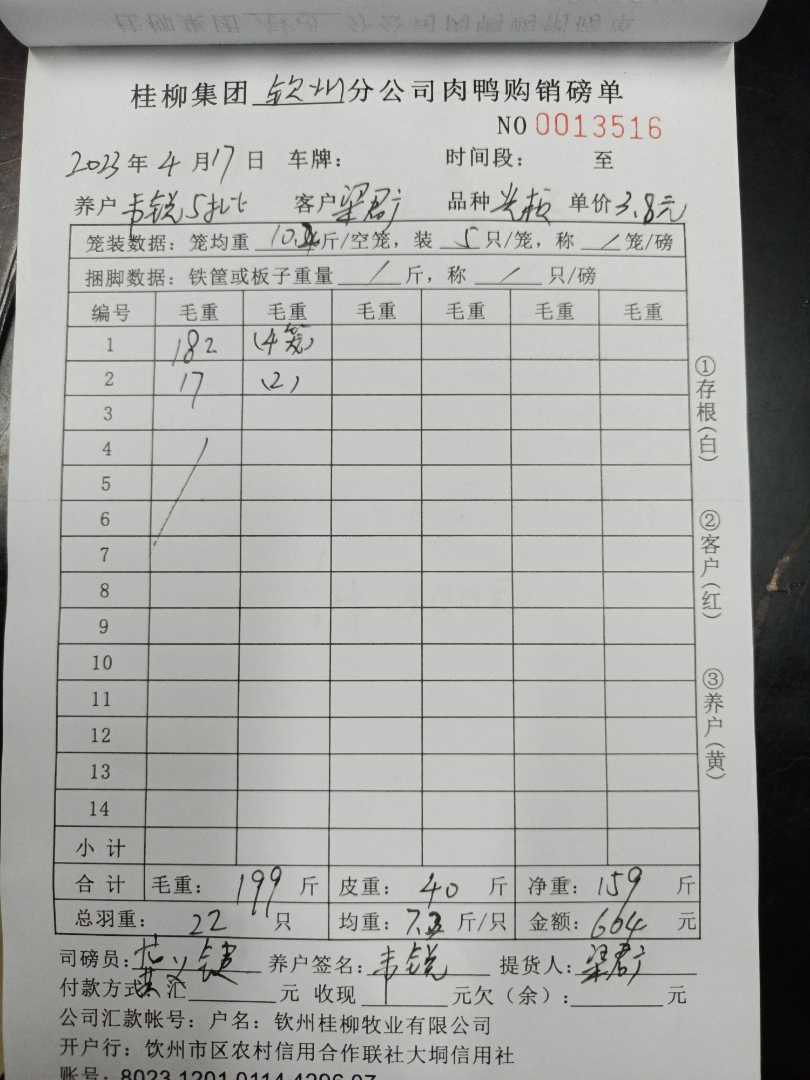 桂柳集团 钦州 分公司肉鸭购销磅单
NO 0013516
2023年4月17日 车牌: 时间段: 至
养户 韦锐5批 客户 梁君广 品种 单价 3.8元
笼装数据: 笼均重 斤/空笼, 装 5 只/笼, 称 / 笼/磅
捆脚数据: 铁筐或板子重量 / 斤, 称 / 只/磅
编号 毛重 毛重 毛重 毛重 毛重 毛重
1 182 (4笼)
2 17 (2)
3
4
5
6
7
8
9
10
11
12
13
14
小计
合计 毛重: 199 斤 皮重: 40 斤 净重: 159 斤
总羽重: 22 只 均重: 斤/只 金额: 604 元
司磅员: 养户签名: 韦锐 提货人: 梁君广
付款方式: 汇 元 收现 元欠(余): 元
公司汇款帐号: 户名: 钦州桂柳牧业有限公司
开户行: 饮州市区农村信用合作联社大垌信用社
账号: 8023 1201 0114 4296 07
①存根(白)
②客户(红)
③养户(黄)